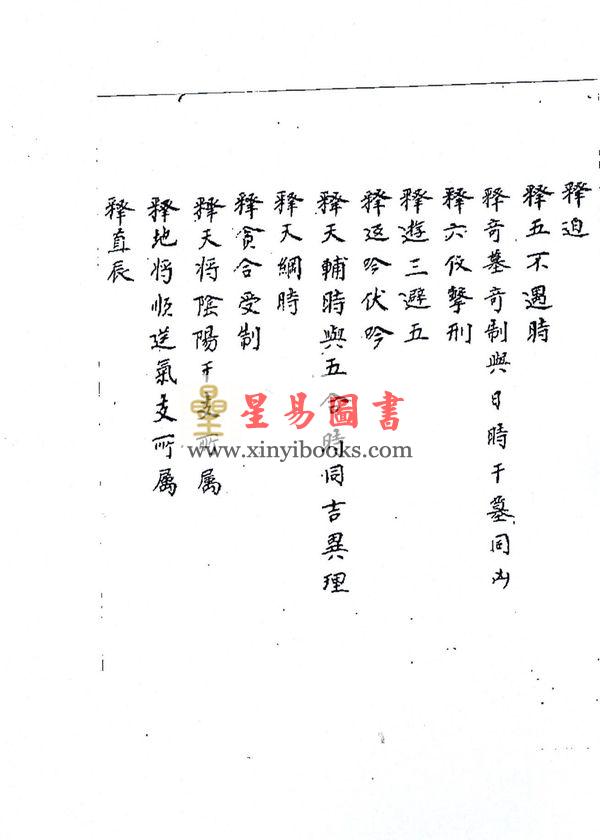 释迫
释五不遇時
释奇墓奇制與日時干墓同凶
释六仪擊刑
释遊三避五
释返吟伏吟
释天輔時與五合時同吉異理
释天綱時
释貪合受制
释天将陰陽干支所属
释地将順逆氣支所属
释直辰
星易圖書
www.xinyibooks.com